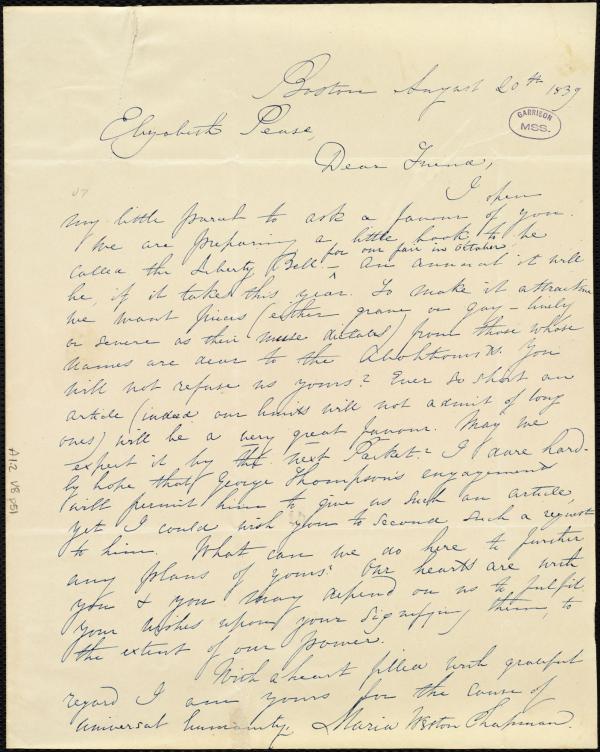 Boston August 20th 1839
GARRISON
MSS.
Elizabeth Pease,
Dear Friend,
I open
my little parcel to ask a favour of you.
We are preparing a little book to be
called the Liberty Bell – for our fair in October. An annual it will
be, if it takes this year. To make it attractive
we want pieces (either grave or gay – lively
or severe as their muse dictates) from those whose
names are dear to the Abolitionists. You
will not refuse us yours? Ever so short an
article (indeed our limits will not admit of long
ones) will be a very great favour. May we
expect it by the next Packet? I dare hard-
ly hope that George Thompson's engagements
will permit him to give us such an article,
yet I could wish you to second such a request
to him. What can we do here to further
any plans of yours? Our hearts are with
you & you may depend on us to fulfil
your wishes upon your signifying them, to
the extent of our power.
With a heart filled with grateful
regard I am yours for the cause of
universal humanity, Maria Weston Chapman.